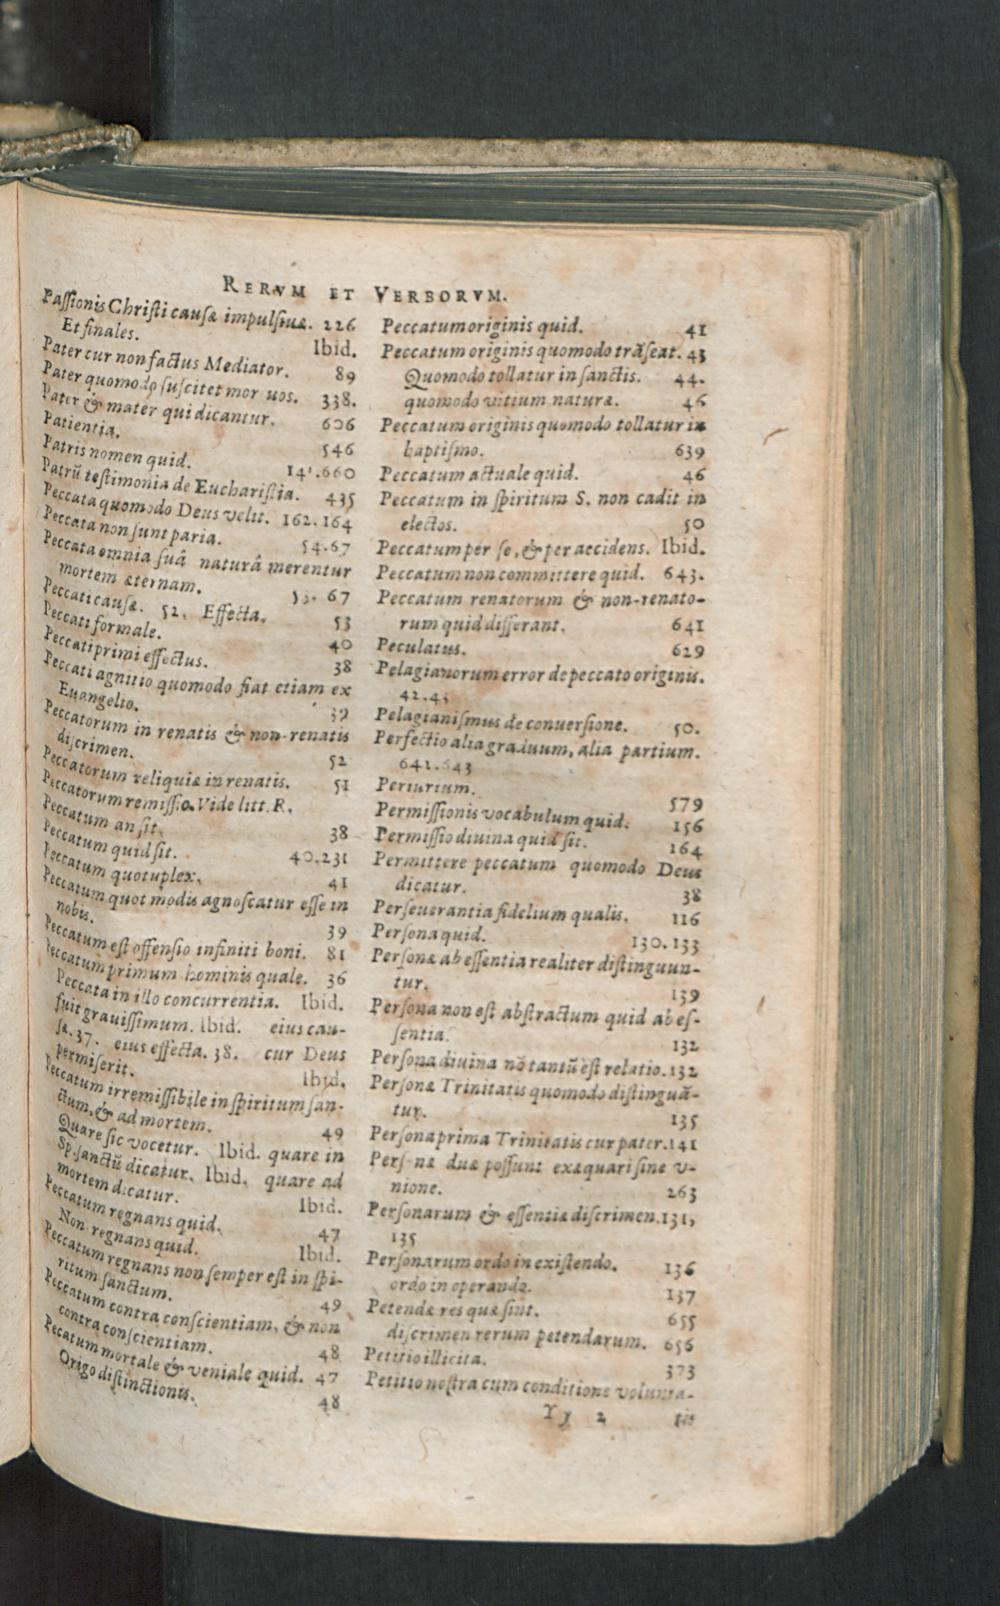 RERVM ET VERBORVM.
Paſſionis Chriſti cauſæ impulſiuæ. 226
Et finales. Ibid.
Pater cur non factus Mediator. 89
Pater quomodo ſuſcitet mor uos. 338.
Pater & mater qui dicantur. 606
Patientia. 546
Patris nomen quid. 141.660
Patrũ teſtimonia de Euchariſtia. 435
Peccata quomodo Deus velit. 162.164
Peccata non ſunt paria. 54.67
Peccata omnia ſuâ naturâ merentur
mortem æternam. 53. 67
Peccati cauſæ. 52. Effecta. 53
Peccati formale. 40
Peccati primi effectus. 38
Peccati agnitio quomodo fiat etiam ex
Euangelio. 39
Peccatorum in renatis & non-renatis
diſcrimen. 52
Peccatorum reliquiæ in renatis. 51
Peccatorum remiſſio. Vide litt. R.
Peccatum an ſit. 38
Peccatum quid ſit. 40.231
Peccatum quotuplex. 41
Peccatum quot modis agnoſcatur eſſe in
nobis. 39
Peccatum eſt offenſio infiniti boni. 81
Peccatum primum hominis quale. 36
Peccata in illo concurrentia. Ibid.
fuit grauiſſimum. Ibid. eius cau-
ſæ. 37. eius effecta. 38. cur Deus
permiſerit. Ibid.
Peccatum irremiſſibile in ſpiritum ſan-
ctum, & ad mortem. 49
Quare ſic vocetur. Ibid. quare in
Sp. ſanctũ dicatur. Ibid. quare ad
mortem dicatur. Ibid.
Peccatum regnans quid. 47
Non regnans quid. Ibid.
Peccatum regnans non ſemper eſt in ſpi-
ritum ſanctum. 49
Peccatum contra conſcientiam, & non
contra conſcientiam. 48
Pecatum mortale & veniale quid. 47
Origo diſtinctionis. 48
Peccatum originis quid. 41
Peccatum originis quomodo trãſeat. 43
Quomodo tollatur in ſanctis. 44.
quomodo vitium naturæ. 46
Peccatum originis quomodo tollatur in
baptiſmo. 639
Peccatum actuale quid. 46
Peccatum in ſpiritum S. non cadit in
electos. 50
Peccatum per ſe, & per accidens. Ibid.
Peccatum non committere quid. 643.
Peccatum renatorum & non-renato-
rum quid differant. 641
Peculatus. 629
Pelagianorum error de peccato originis.
42.43
Pelagianiſmus de conuerſione. 50.
Perfectio alia graduum, alia partium.
641.643
Periurium. 579
Permiſſionis vocabulum quid. 156
Permiſſio diuina quid ſit. 164
Permittere peccatum quomodo Deus
dicatur. 38
Perſeuerantia fidelium qualis. 116
Perſona quid. 130.133
Perſonæ ab eſſentia realiter diſtinguun-
tur. 139
Perſona non eſt abſtractum quid ab eſ-
ſentia. 132
Perſona diuina nõ tantũ eſt relatio. 132
Perſonæ Trinitatis quomodo diſtinguã-
tur. 135
Perſona prima Trinitatis cur pater. 141
Perſonæ duæ poſſunt exæquari ſine v-
nione. 263
Perſonarum & eſſentiæ diſcrimen. 131,
135
Perſonarum ordo in exiſtendo. 136
ordo in operando. 137
Petendæ res quæ ſint. 655
diſcrimen rerum petendarum. 656
Petitio illicita. 373
Petitio noſtra cum conditione volunta-
Yy 2 tis